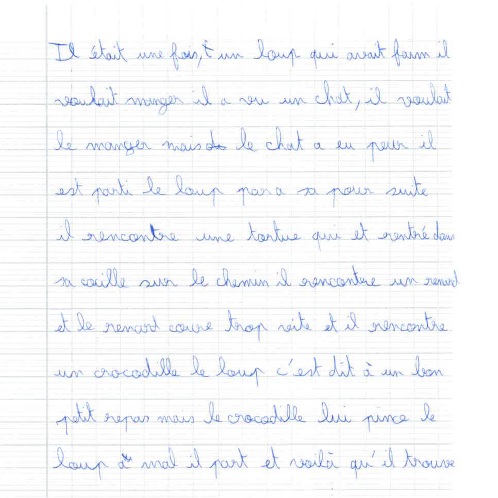 Il était une fois, un loup qui avait faim il
voulait manger il a vu un chat, il voulait
le manger mais le chat a eu peur il
est parti le loup par a sa pour suite
il rencontre une tortue qui et rentré dans
sa couille sur le chemin il rencontre un renard
et le renard coure trop vite et il rencontre
un crocodille le loup c'est dit à un bon
petit repas mais le crocodille lui pince le
loup a mal il part et voilà qu'il trouve